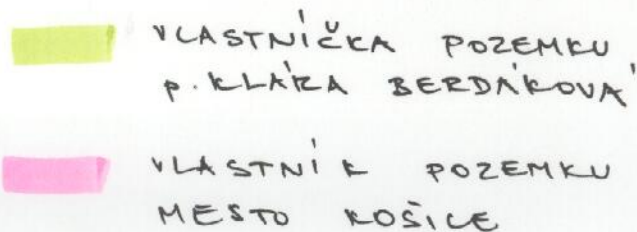 VLASTNÍČKA POZEMKU
p. KLÁRA BERDÁKOVÁ
VLASTNÍK POZEMKU
MESTO KOŠICE